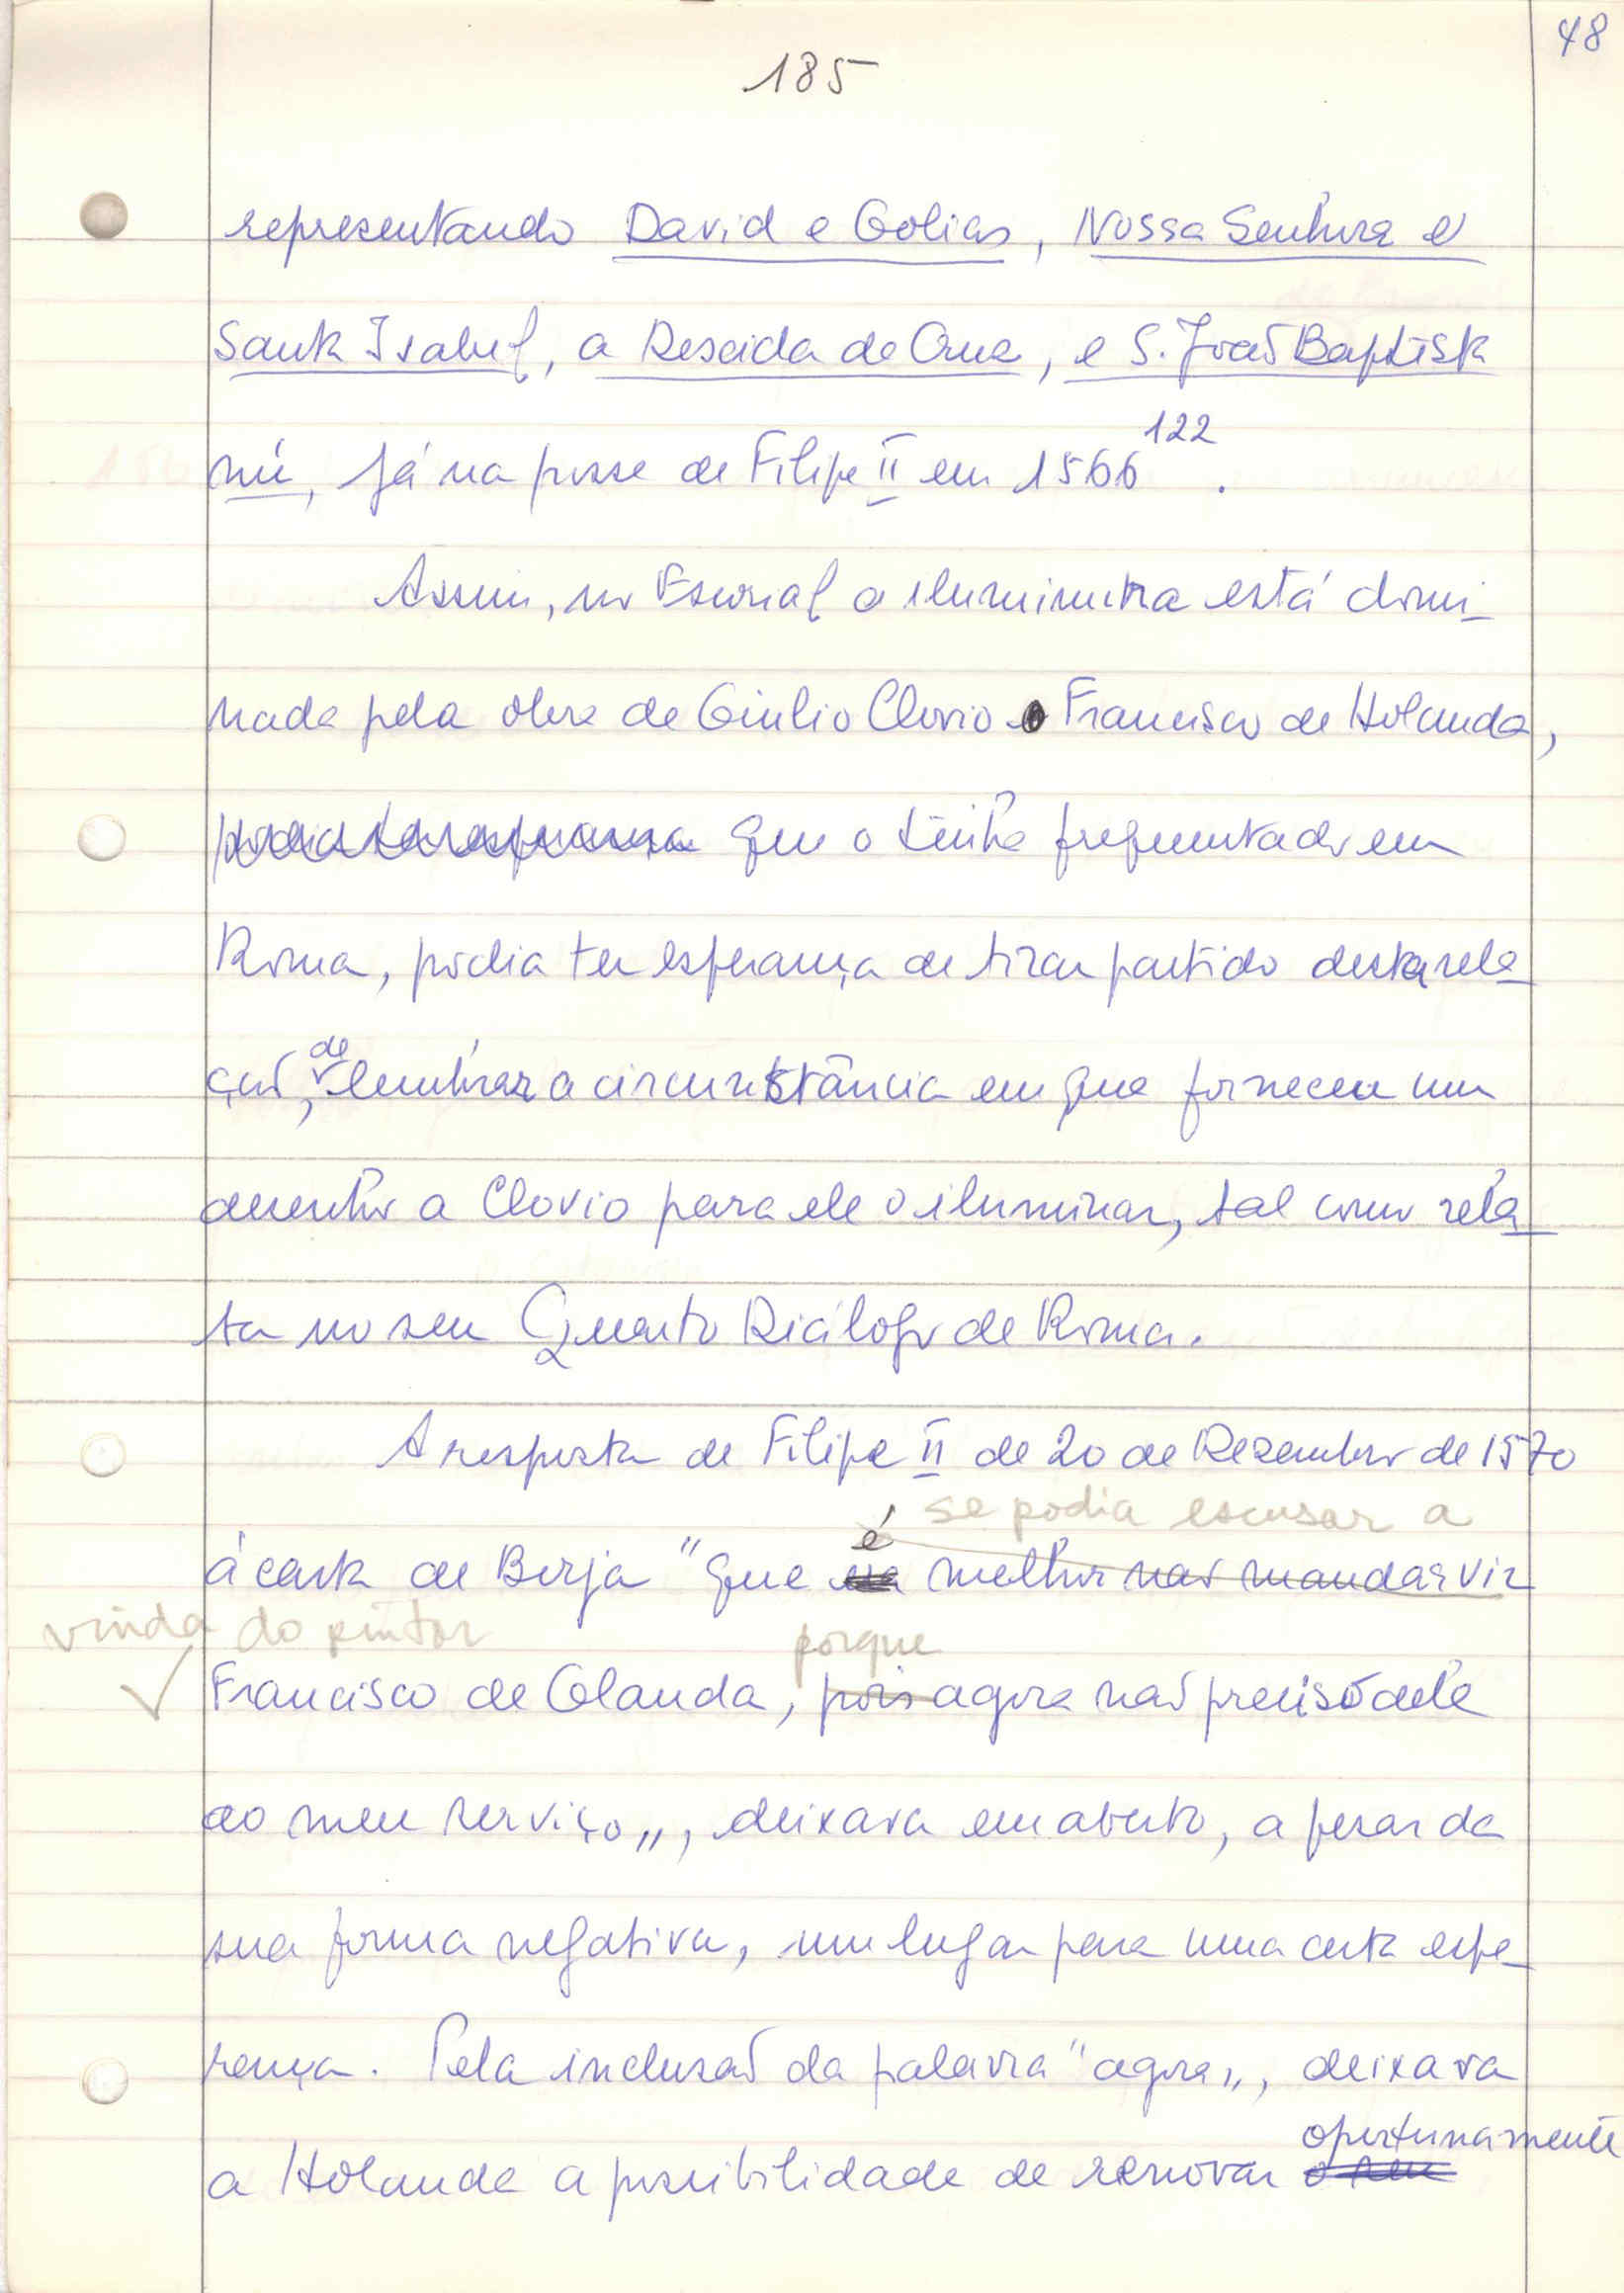 48
185
representando David e Golias, Nossa Senhora e
Santa Isabel, a Descida da Cruz, e S. João Baptista
nú, já na posse de Filipe II em 1566 122.
Assim, no Escorial a iluminura está domi-
nada pela obra de Giulio Clovio e Francisco de Holanda,
podia ter esperança que o tinha frequentado em
Roma, podia ter esperança de tirar partido desta rela-
ção, de lembrar a circunstância em que forneceu um
desenho a Clovio para ele o iluminar, tal como rela-
ta no seu Quarto Diálogo de Roma.
A resposta de Filipe II de 20 de Dezembro de 1570
se podia escusar a
é
á carta de Borja "que melhor não mandar vir
vinda do pintor
porque
Francisco de Olanda, pois agora não preciso dele
ao meu serviço", deixava em aberto, a pesar da
sua forma negativa, um lugar para uma certa espe-
rança. Pela inclusão da palavra "agora", deixava
oportunamente
a Holanda a possibilidade de renovar o seu